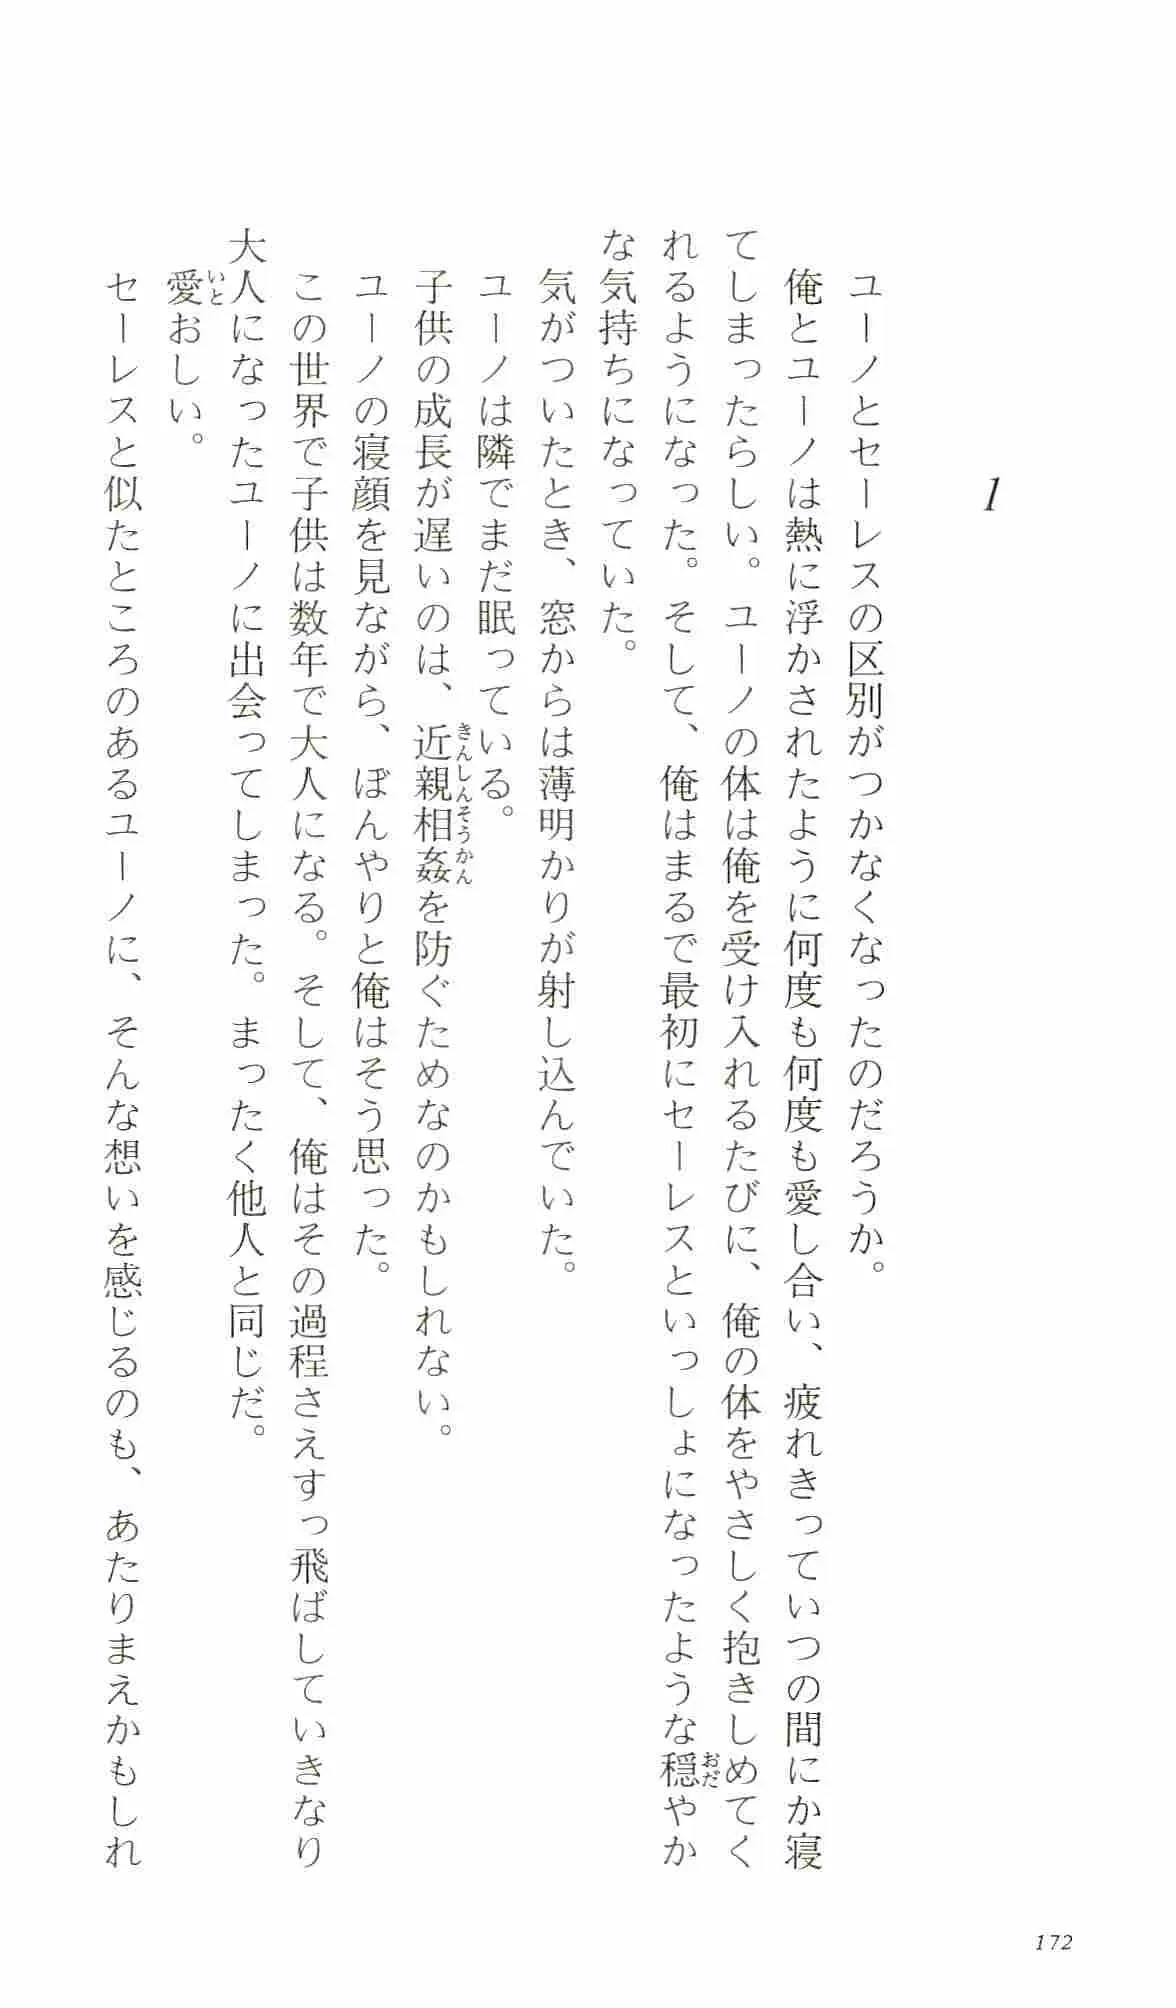 1
ユーノとセーレスの区別がつかなくなったのだろうか。
俺とユーノは熱に浮かされたように何度も何度も愛し合い、疲れきっていつの間にか寝
てしまったらしい。ユーノの体は俺を受け入れるたびに、俺の体をやさしく抱きしめてく
れるようになった。そして、俺はまるで最初にセーレスといっしょになったような穏やか
な気持ちになっていた。
気がついたとき、窓からは薄明かりが射し込んでいた。
ユーノは隣でまだ眠っている。
子供の成長が遅いのは、近親相姦を防ぐためなのかもしれない。
ユーノの寝顔を見ながら、ぼんやりと俺はそう思った。
この世界で子供は数年で大人になる。そして、俺はその過程さえすっ飛ばしていきなり
大人になったユーノに出会ってしまった。まったく他人と同じだ。
愛おしい。
セーレスと似たところのあるユーノに、そんな想いを感じるのも、あたりまえかもしれ
172